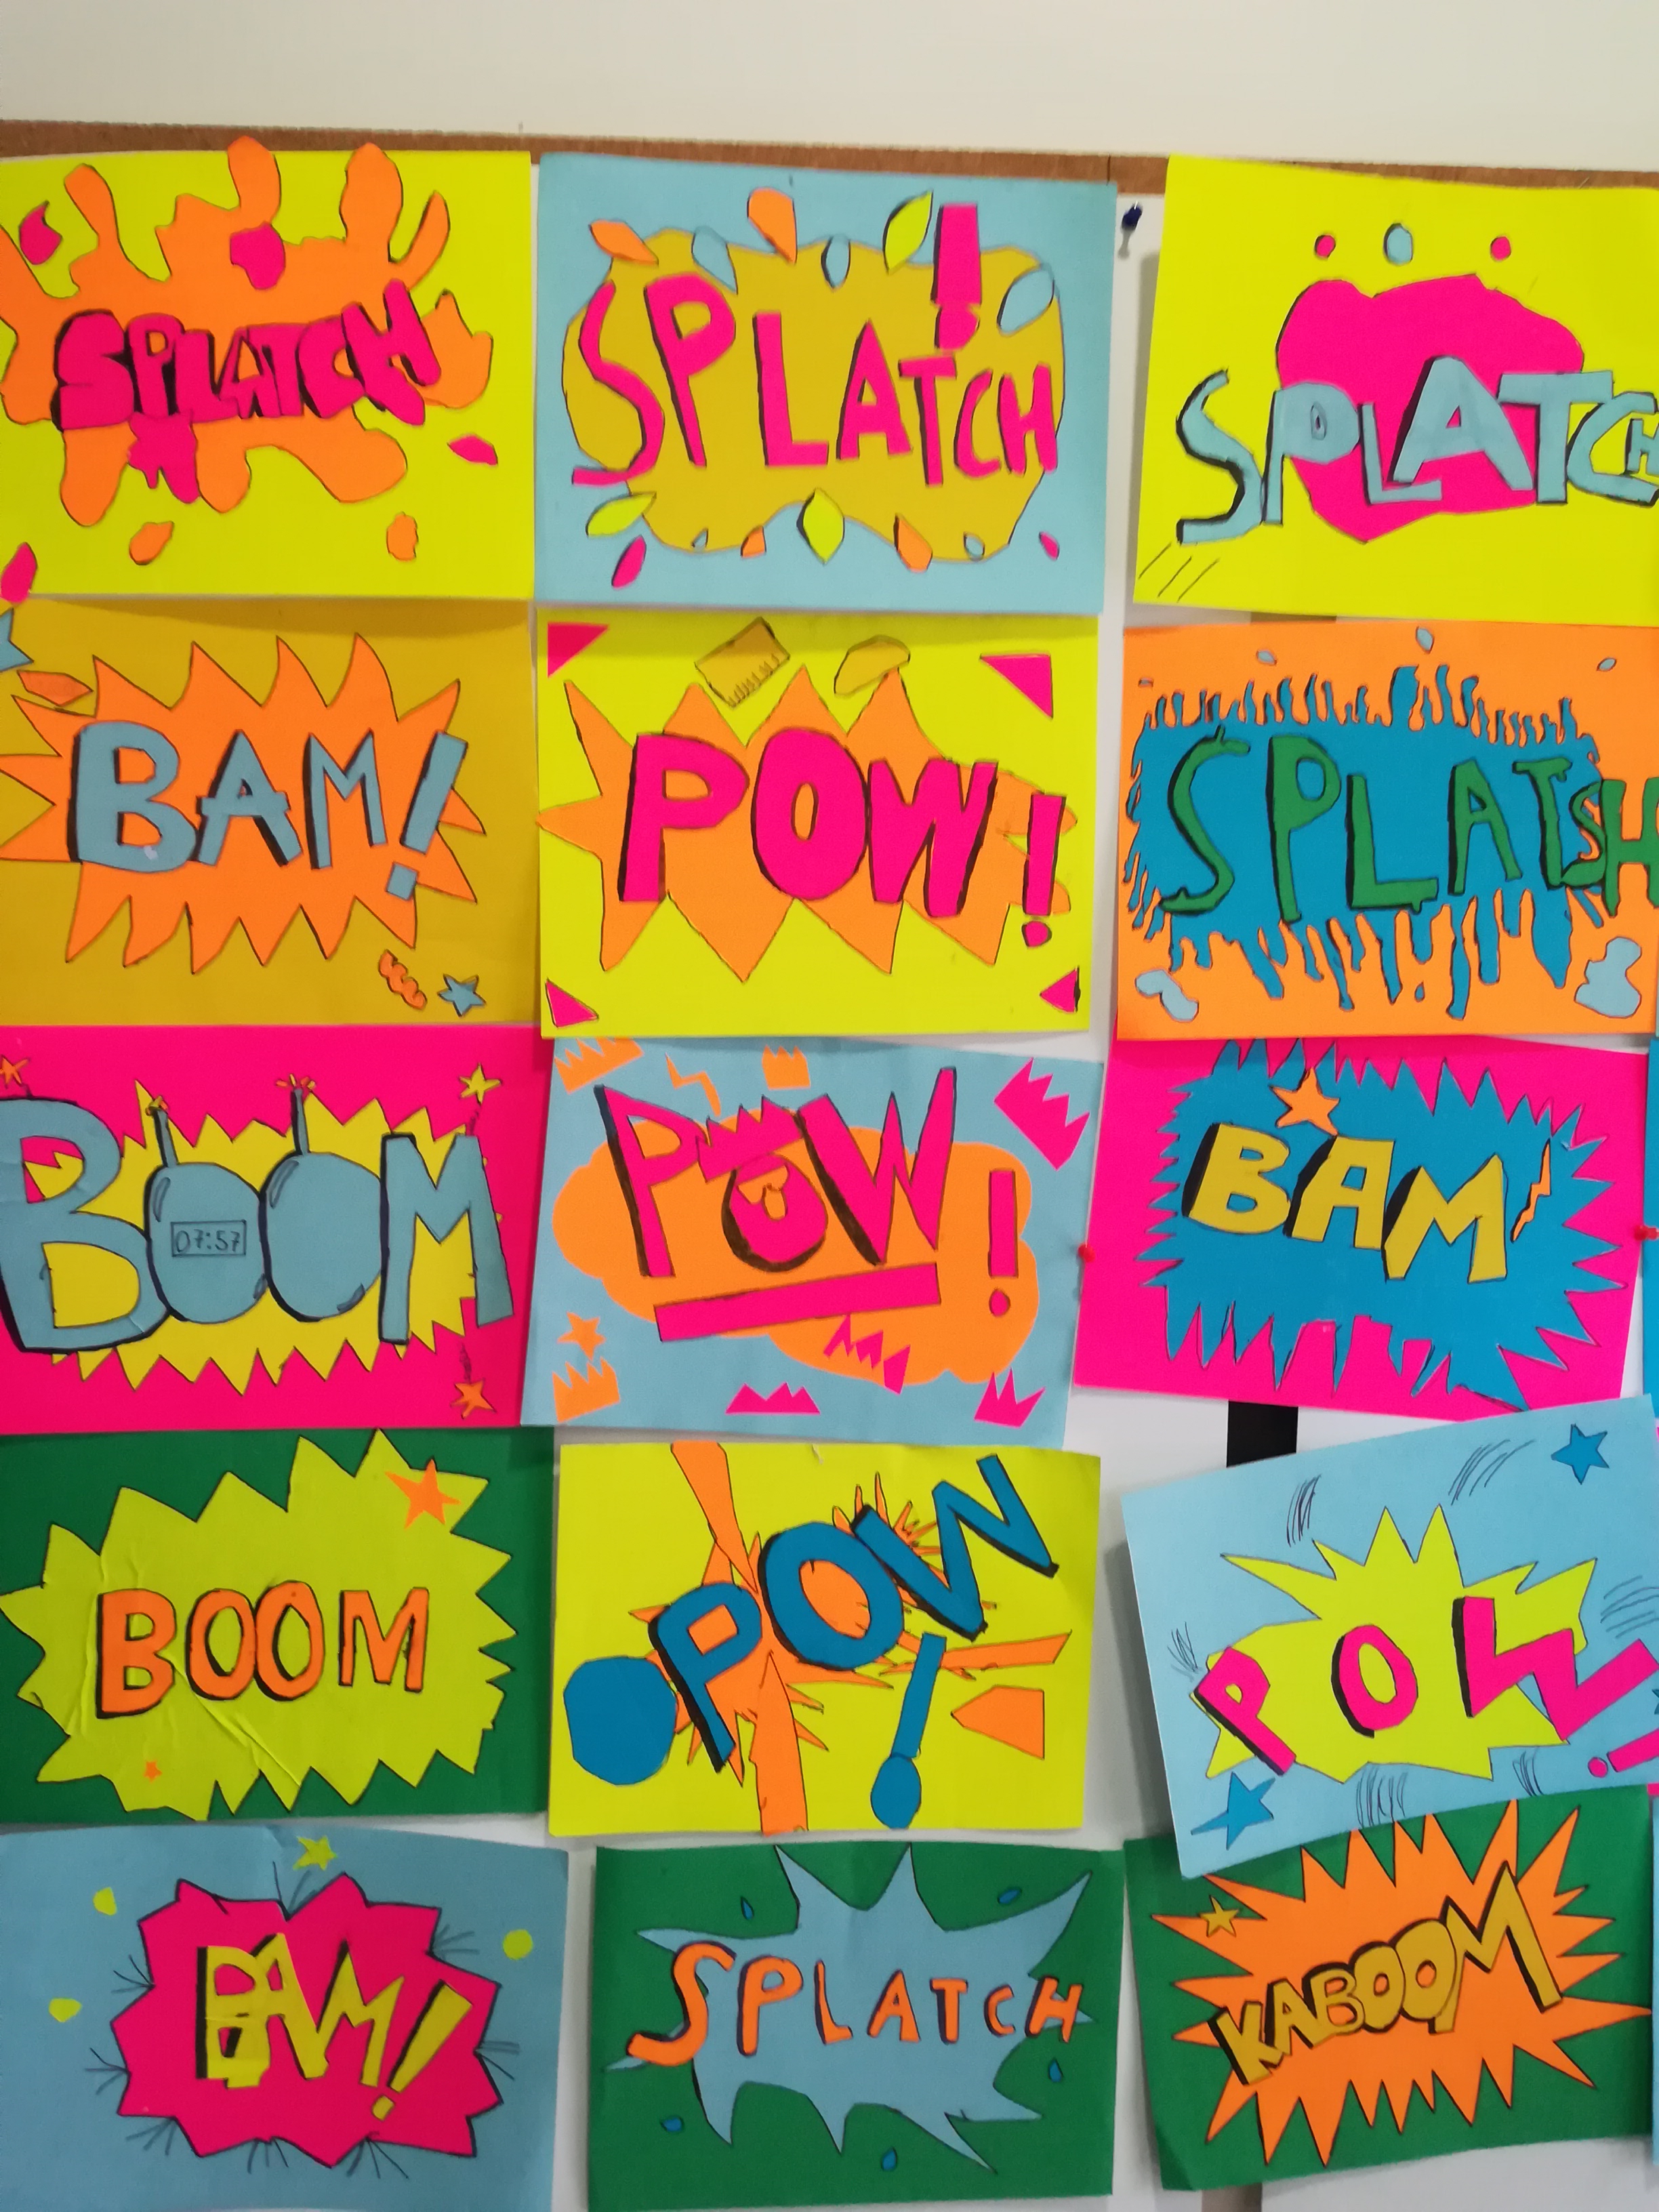 SPLATCH
SPLATCH!
SPLATCH
BAM!
POW!
SPLATSH
BOOM
07:57
POW!
BAM
BOOM
POW!
POW!
BAM!
SPLATCH
KABOOM